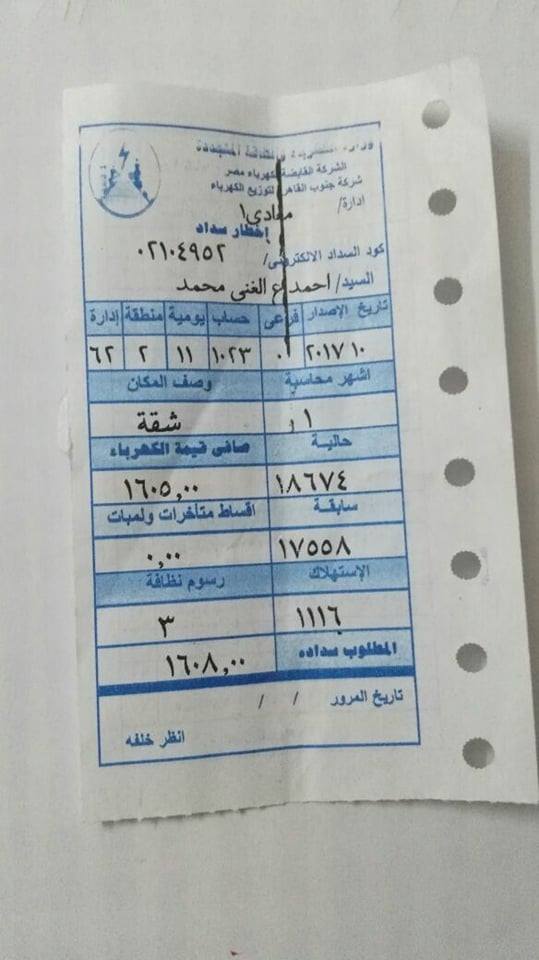 وزارة الكهرباء والطاقة المتجددة
الشركة القابضة لكهرباء مصر
شركة جنوب القاهرة لتوزيع الكهرباء
ادارة/ معادى١
إخطار سداد
كود السداد الالكترونى/ ٠٢١٠٤٩٥٢
السيد/ احمد ع الغنى محمد
تاريخ الإصدار فرعى حساب يومية منطقة إدارة
٢٠١٧١٠ ٠١ ١٠٢٣ ١١ ٢ ٦٢
اشهر محاسبة وصف المكان
١ شقة
حالية صافى قيمة الكهرباء
١٨٦٧٤ ١٦٠٥,٠٠
سابقة اقساط متأخرات ولمبات
١٧٥٥٨ ٠,٠٠
الإستهلاك رسوم نظافة
١١١٦ ٣
المطلوب سداده ١٦٠٨,٠٠
تاريخ المرور / /
انظر خلفه